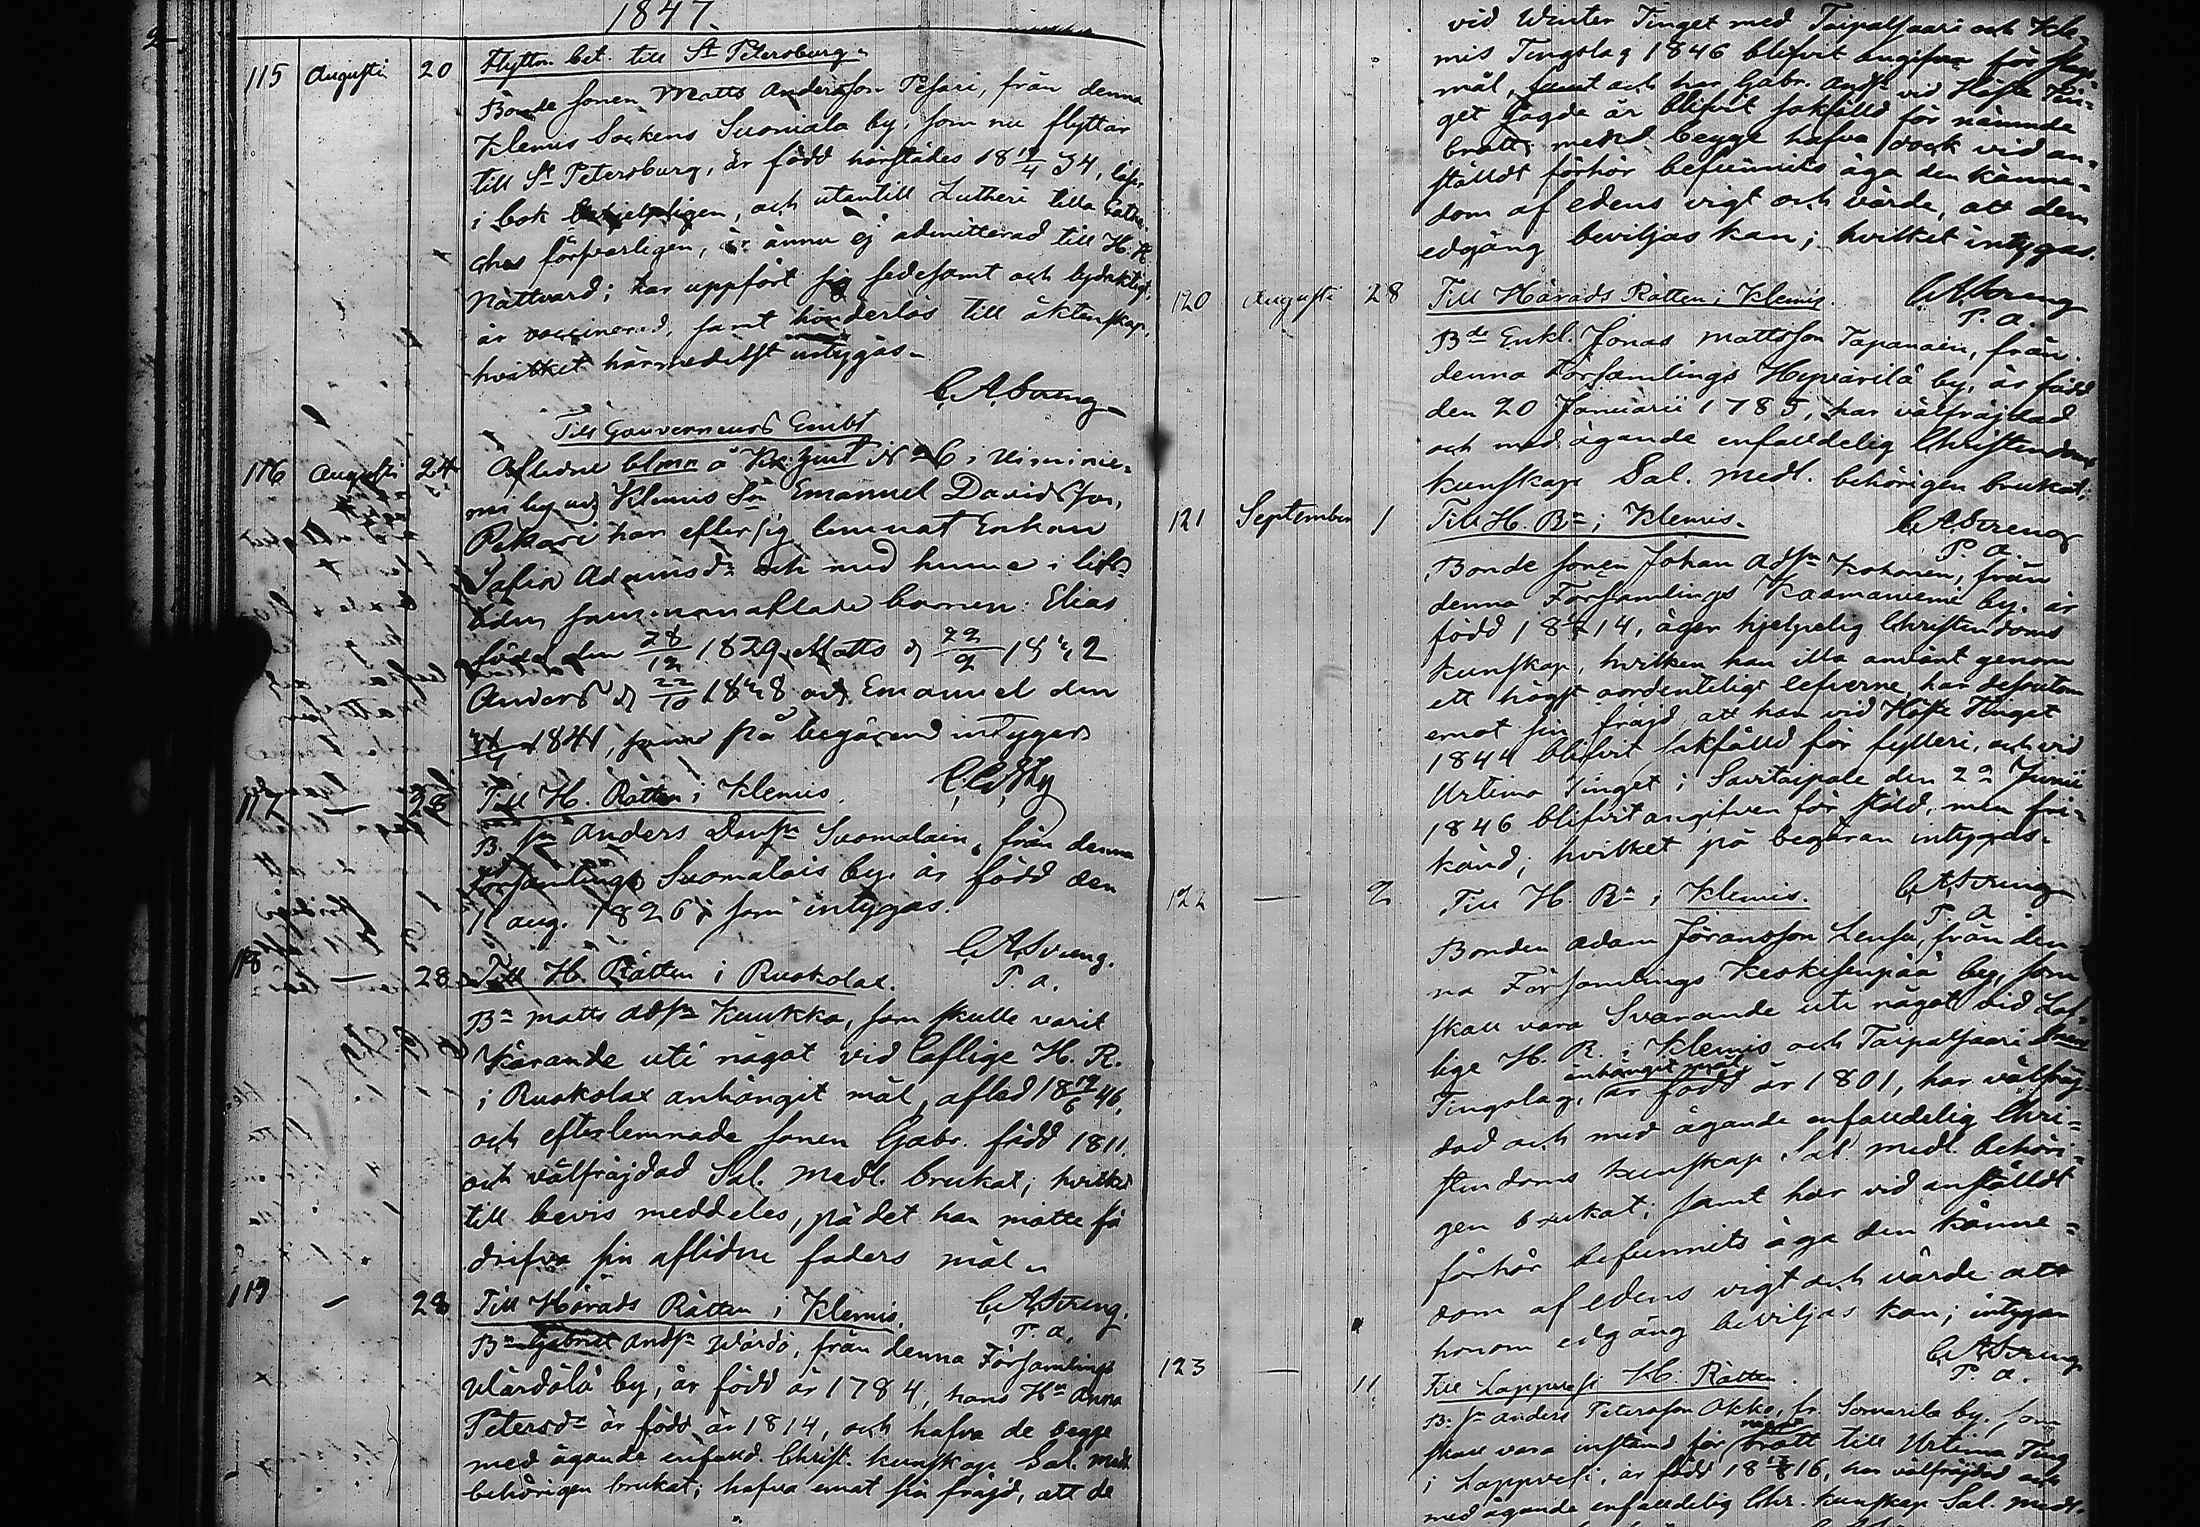 1847.
115 Augusti 20 Flyttn. bet. till St Petersburg.
Bonde sonen Matts Andersson Pesari, från denna
Klemis Sockens Suomala by, som nu flyttar
till St Petersburg, är född härstädes 18 4 34, läser
i bok behjelpligen, och utantill Lutheri lilla Cathe
ches försvarligen, är ännu ej admitterad till H. H.
Nattvard; har uppfört sig sedesamt och lydaktigt,
är vaccinerad, samt hinderlös till äktenskap,
hvilket härmedelst intygas.
C. A. Streng
Till Gouverneurs Embt
116 Augusti 24 Aflidne å N 6 i
by Klemis Sn Emanuel Davidsson
Pekari har efter sig lemnat Enkan
Adamsdr och med henne i lifs-
tiden sammanaflade barnen: Elias
född den 28/12 1829, Matts d 22/2
Anders d 22/10 och Emanuel den
1841, som på begäran intygas
117 — 28 Till H. Rätten i Klemis.
B. sn Anders Davsn Suomalain, från denna
Församlings Suomalais by, är född den
11 aug. 1826; som intygas.
C. A. Streng.
P. a.
118 — 28 Till H. Rätten i Ruokolax.
Bn Matts Adsn Kuukka, som skulle varit
Kärande uti något vid Loflige H. R.
i Ruokolax anhängit mål, afled 18 17/6 46,
och efterlemnade sonen Gabr. född 1811.
och välfräjdad Sal. medl. brukat; hvilket
till bevis meddeles, på det han måtte få
drifva sin aflidne faders mål.
119 — 28 Till Härads Rätten i Klemis.
C. A. Streng.
P. a.
Bn Gabriel Andsn Wärdö, från denna Församlings
Wärdälä by, är född år 1784, hans Hu Anna
Petersdr är född år 1814, och hafva de begge
med ägande enfald. Christ. kunskap Sal. medl.
behörigen brukat; hafva emot sin fräjd, att de
vid Winter Tinget med Taipalsaari och Kle-
mis Tingslag 1846 blifvit angifne för
mål, samt och har Gabr. Andsn vid Höste Tin-
get sagde år blifvit sakfälld för nämnde
brott; med begge hafva dock vid an-
ställdt förhör befunnits äga den känne-
dom af edens vigt och värde, att dem
edgång beviljas kan; hvilket intygas.
120 Augusti 28 Till Härads Rätten i Klemis.
C. A. Streng
P. a.
Bde Enkl. Jonas Mattsson Tapanain, från
denna Församlings Hyvärilä by, är född
den 20 Januarii 1785, har välfräjdad
och med ägande enfalldelig Christendoms
kunskap Sal. medl. behörigen brukat;
121 September 1 Till H. Rn i Klemis.
C. A. Streng
P. a.
Bonde sonen Johan Adsn Kohonen, från
denna Församlings Kaamaniemi by, är
född 18 14, äger hjelpelig Christendoms
kunskap, hvilken han illa använt genom
ett högst oordenteligt lefverne, har desutom
emot sin fräjd att han vid Höste Tinget
1844 blifvit sakfälld för fylleri, och vid
Urtima Tinget i Savitaipale den 22 Junii
1846 blifvit angifven för stöld, men fri-
känd; hvilket på begäran intygas.
122 — 2 Till H. Rn i Klemis.
C. A. Streng
P. a.
Bonden Adam Göransson Lensu, från den-
na Församlings Keskisenpää by, som
skall vara Svarande uti något vid Lof-
lige H. R. i Klemis och Taipalsaari
Tingslag, anhängit mål är född år 1801, har välfräj-
dad och med ägande enfalldelig Chri-
stendoms kunskap Sal. medl. behöri-
gen brukat; samt har vid anställdt
förhör befunnits äga den känne-
dom af edens vigt och värde att
honom edgång beviljas kan; intygas
C. A. Streng
P. a.
123 — 11 Till Lappvesi H. Rätten.
B. sn Anders Petersson Okko, fr. Sorvarila by, som
skall vara instämd för något brott till Urtima Ting
i Lappvesi, är född 18 16, har välfräjdad och
med ägande enfalldelig Chr. kunskap Sal. medl.